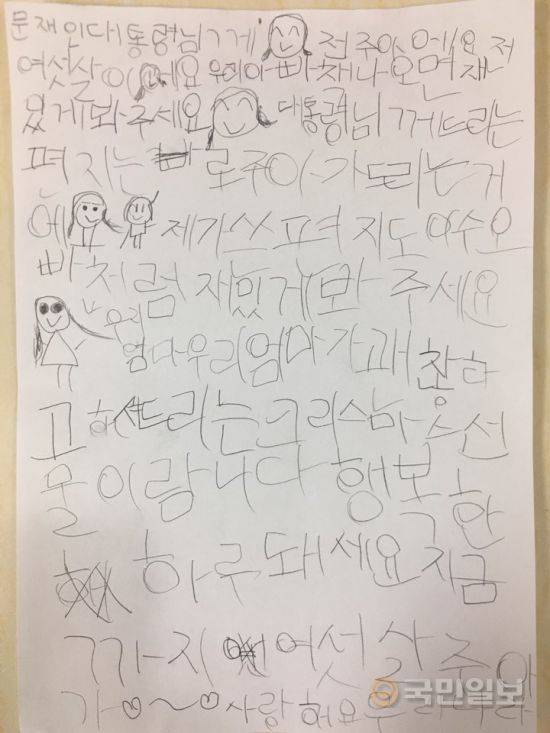 문재인대통령님ㄱ게 전주아에요 저
여섯살이에요 우리아빠채나오면재
있게봐주세요 대통령님ㄱ께드리는
편지는 로주아가드리는거
에 제가쓰펴지도 야수오
빠처럼재밌게봐 주세요
우리
엄마우리엄마가괘찮하
고 드리는크리스맘수선
물이람니다 행복한
하루돼세요지금
ㄱ가지 여섯살주아
가♡~♡사랑해요
국민일보